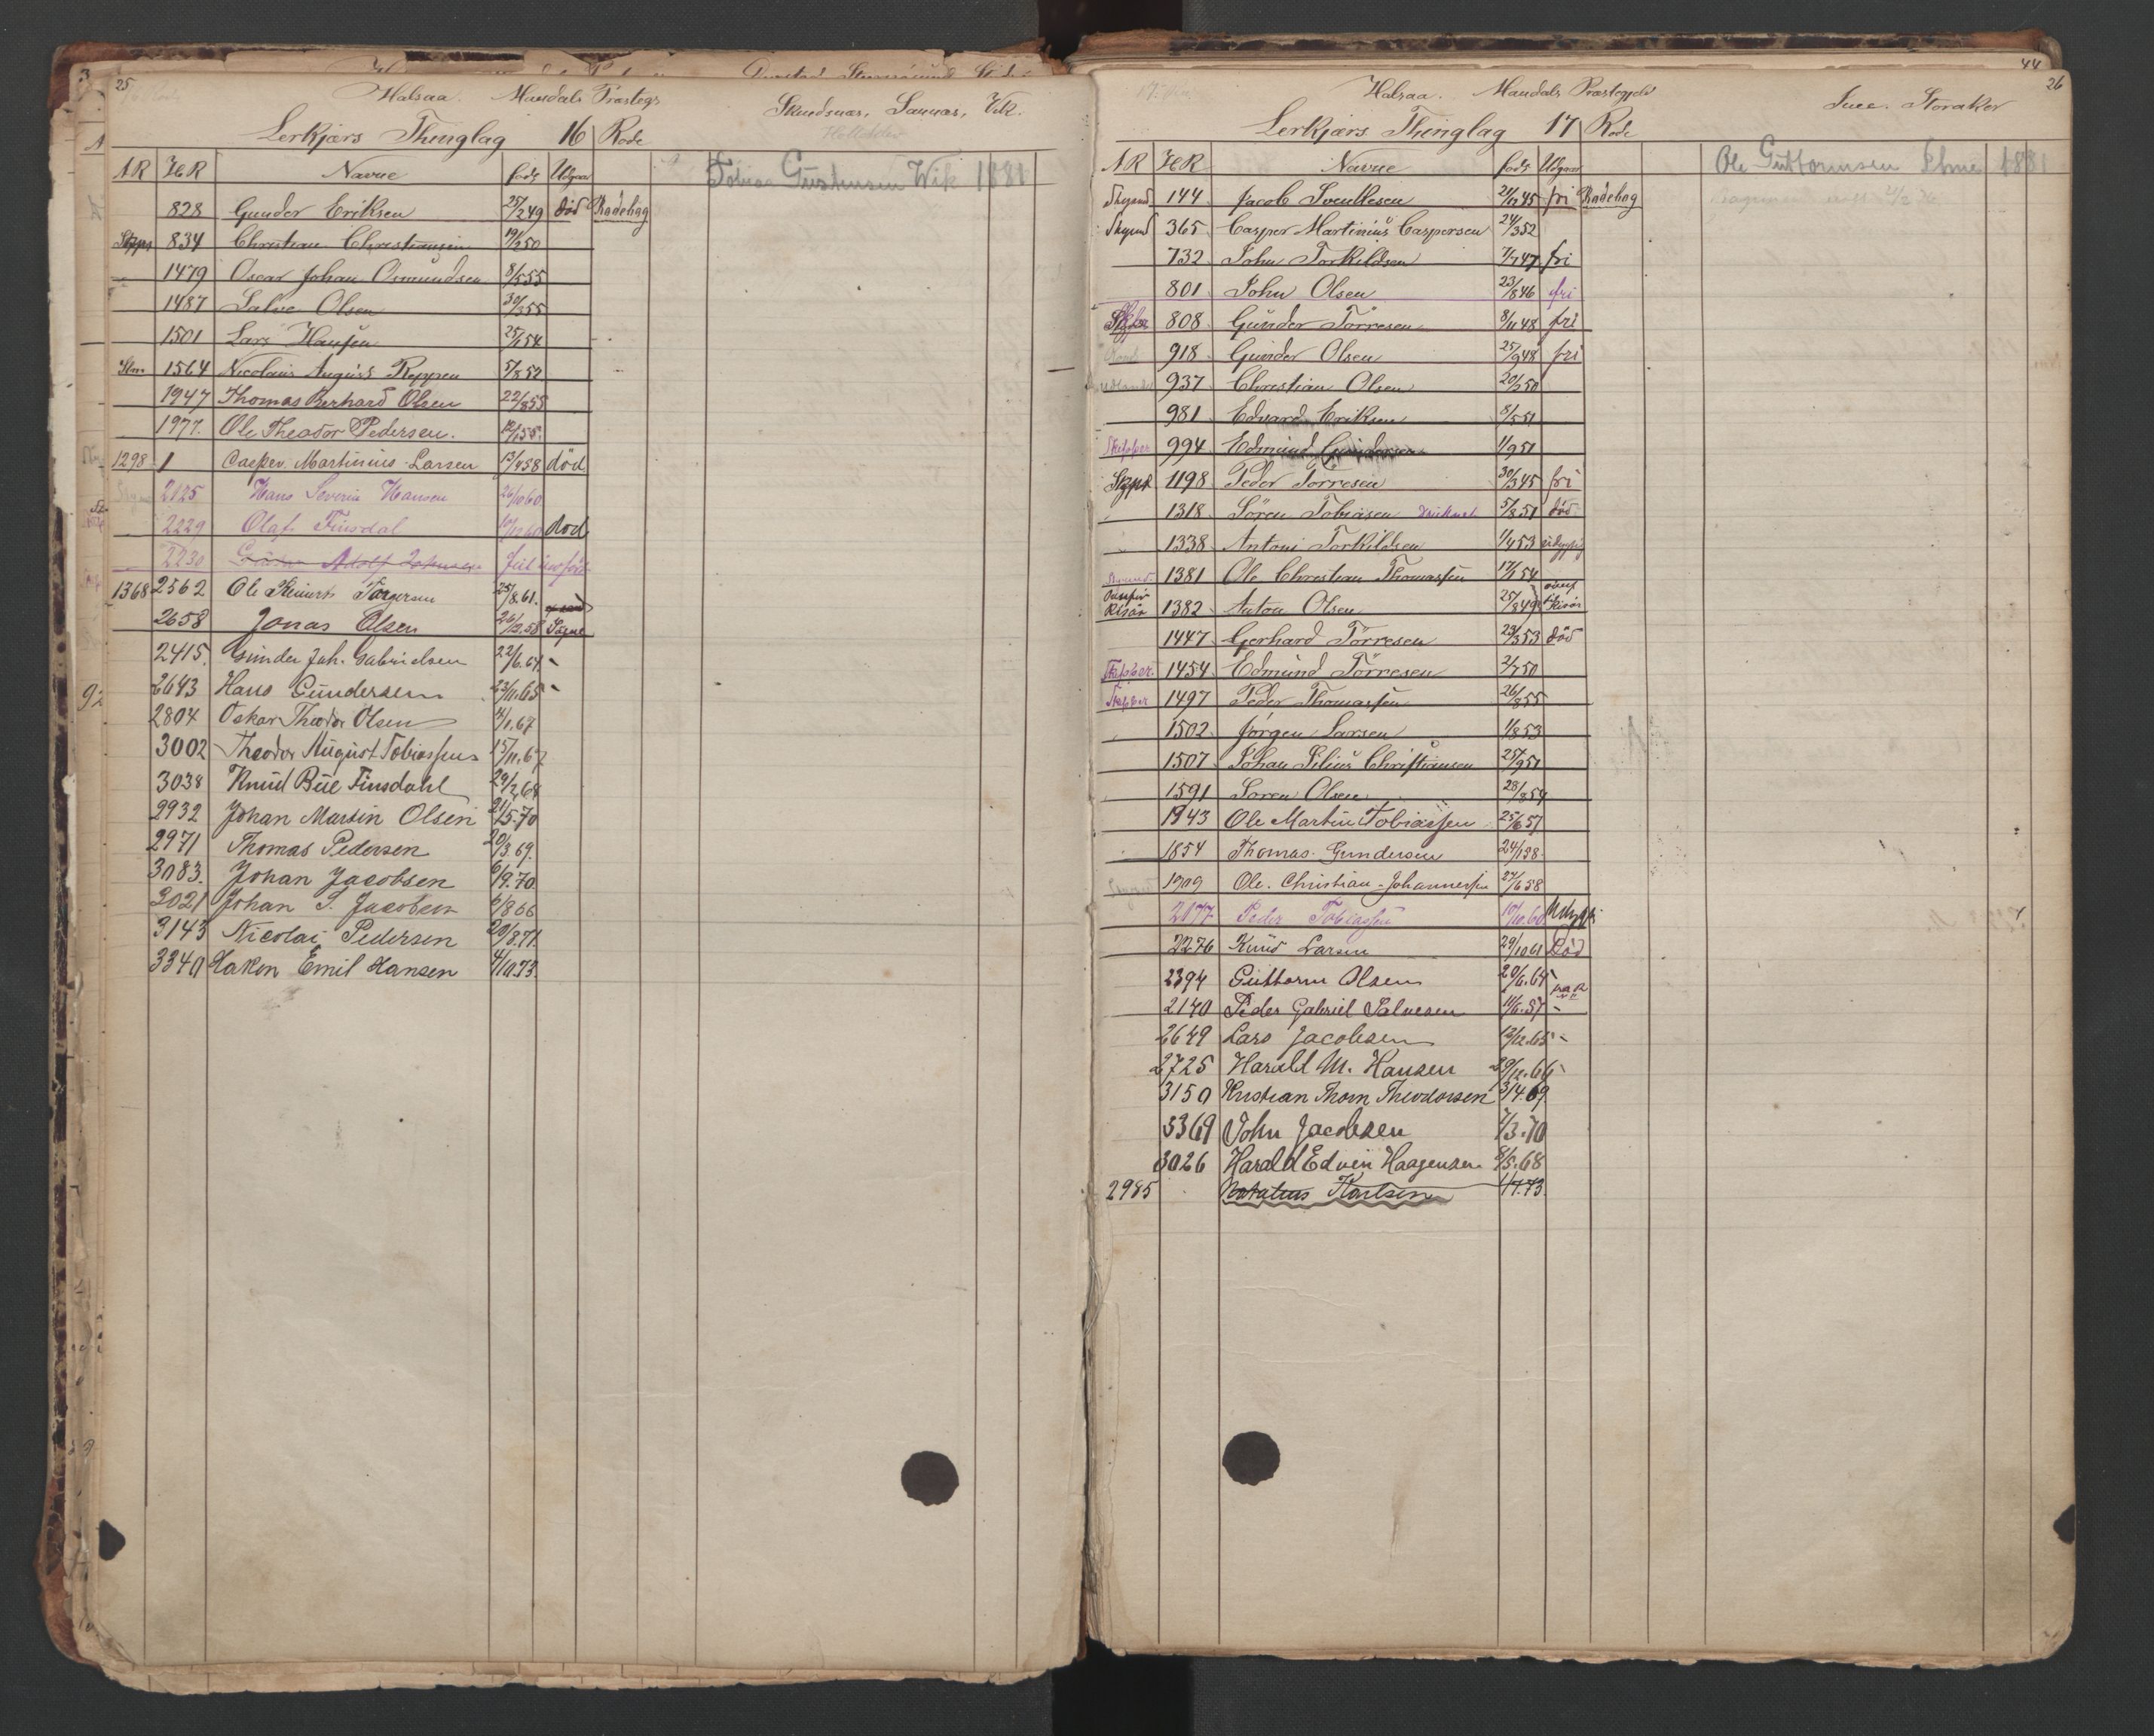 25
Halsaa. Mandals Præstegj
Skandsnæs, Vik.
Lerkjærs Thinglag 16 Rode
AR HR Navne født Udgaar
Tobias Gustensen Wik 1881
828 Gunder Eriksen 25/2 49 død Rodebog
834 Christian Christiansen 19/2 50
1479 Oscar Johan Osmundsen 8/5 55
1487 Salve Olsen 30/3 55
1501 Lars Hansen 25/1 54
1564 Nicolaus August Reppen 5/8 52
1947 Thomas Berhard Olsen 22/8 55
1977. Ole Theodor Pedersen. 12/1 55.
1298 1 Casper Martinius Larsen 13/4 58 død
2125 Hans Severin Hansen 26/10 60
2229 Olaf Finsdal 10/12 60 død
2230 Adolf
1368 2562 Ole Reinert Torgersen 25/8.61.
2658 Jonas Olsen 26/12.58 Søgne
2415. Gunder Joh. Gabrielsen 22/6.64 -
2643 Hans Gundersen 23/11.65 -
2804 Oskar Theodor Olsen 4/1.67
3002 Theodor August Tobiassen 15/11.67
3038 Knud Bue Finsdahl 29/2.68
2932 Johan Martin Olsen 21/5.70
2971 Thomas Pedersen 20/3.69.
3083. Johan Jacobsen 6/9.70.
3021 Johan S. Jacobsen 6/8 66
3143 Nicolai Pedersen 20/8.71.
3340 Hakon Emil Hansen 4/10.73.
44
26
Halsaa. Mandals Præstegjeld
Storaker
Lerkjærs Thinglag 17 Rode
AR HR Navne født Udgaar
Ole Guttormsen 1881
144 Jacob 21/12 45 fri Rodebog
365 Casper Martinius Caspersen 24/3 52
732 John Torkildsen 7/7 47 fri
801 John Olsen 23/8 46 fri
808 Gunder Tørresen 8/11 48 fri
918 Gunder Olsen 25/9 48 fri
937 Christian Olsen 20/2 50
981 Edvard Eriksen 8/5 51
Skipper 994 Edmund Gundersen 1/9 51
1198 Peder Torresen 30/3 45 fri
1318 Søren Tobiasen druknet 5/8 51 død
1338 Antoni Torkildsen 1/4 53
1381 Ole Christian Thomassen 17/1 54
Risør 1382 Anton Olsen 25/8 49 Risør
1447 Gerhard Tørresen 23/3 53 død
Skipper 1454 Edmund Tørresen 2/7 50
Skipper 1497 Peder Thomassen 26/8 55
1502 Jørgen Larsen 1/8 53
1507 Johan Julius Christiansen 25/9 51
1591 Soren Olsen 28/8 54
1943 Ole Martin Tobiassen 25/6 57
1854 Thomas Gundersen 24/1 58
1909 Ole. Christian Johannessen 27/6 58
2177 Peder Tobiassen 10/10.60
2276 Knud Larsen 29/10 61 Død
2394 Guttorm Olsen 20/6.64
2140 Peder Gabriel Salvesen 11/6.57 -
2649 Lars Jacobsen 12/12.65 -
2725 Harald M. Hansen 30/12.66
3150 Kristian Thom Theodorsen 3/4.69
3369 John Jacobsen 7/3.70
3026 Harald Edvin Haagensen 8/5.68
2985 Karlsen 1/7.73.